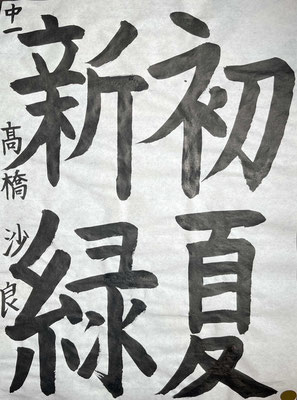 初夏
新緑
中一 髙橋 沙良